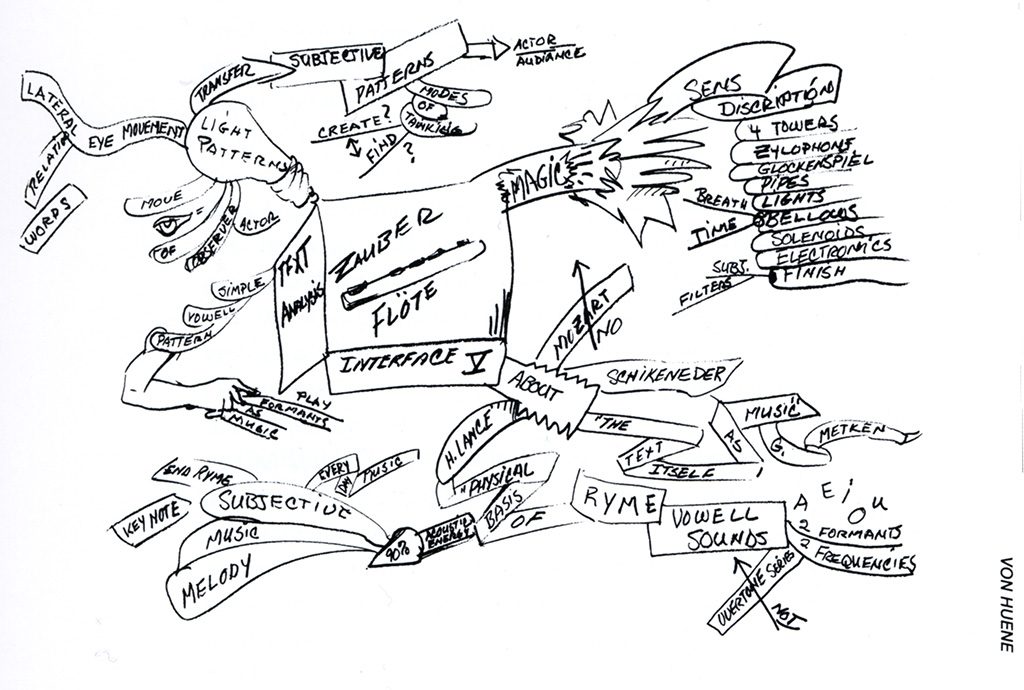 TRANSFER
SUBJECTIVE
PATTERNS
ACTOR
AUDIANCE
CREATE?
FIND
?
MODES
OF
LATERAL
EYE MOVEMENT
WORDS
LIGHT
PATTERNS
MOVE
=
OF
OBSERVER
ACTOR
SIMPLE
VOWELL
PATTERN
PLAY
FORMANTS
AS
MUSIC
TEXT
ANALYSIS
ZAUBER
FLÖTE
INTERFACE V
MAGIC
SENS
DISCRIPTION
4 TOWERS
ZYLOPHONE
GLOCKENSPIEL
PIPES
LIGHTS
BELLOWS
SOLENOIDS
ELECTRONICS
FINISH
BREATH
TIME
SUBJ.
FILTERS
MOZART
NO
ABOUT
SCHIKENEDER
"THE
TEXT
ITSELF
AS
MUSIC"
G.
METKEN
H. LANCE
"PHYSICAL
BASIS
OF
RYME
VOWELL
SOUNDS
A E i O U
2 FORMANTS
2 FREQUENCIES
OVERTONE SERIES
NOT
ACOUSTIC
ENERGY
90%
END RYME
EVERY
DAY
MUSIC
SUBJECTIVE
KEY NOTE
MUSIC
MELODY
VON HUENE